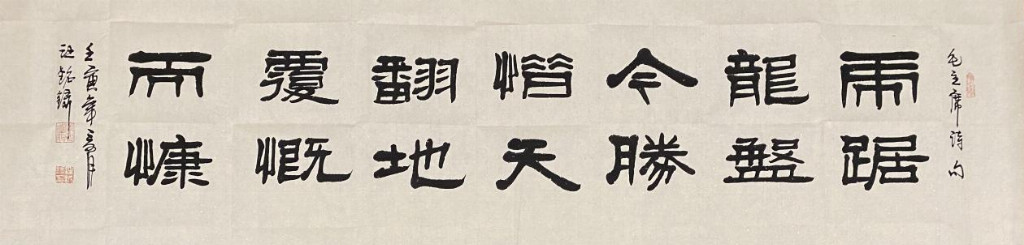 毛主席詩句
虎踞
龍盤
今勝
惜天
翻地
覆慨
而慷
壬寅年月